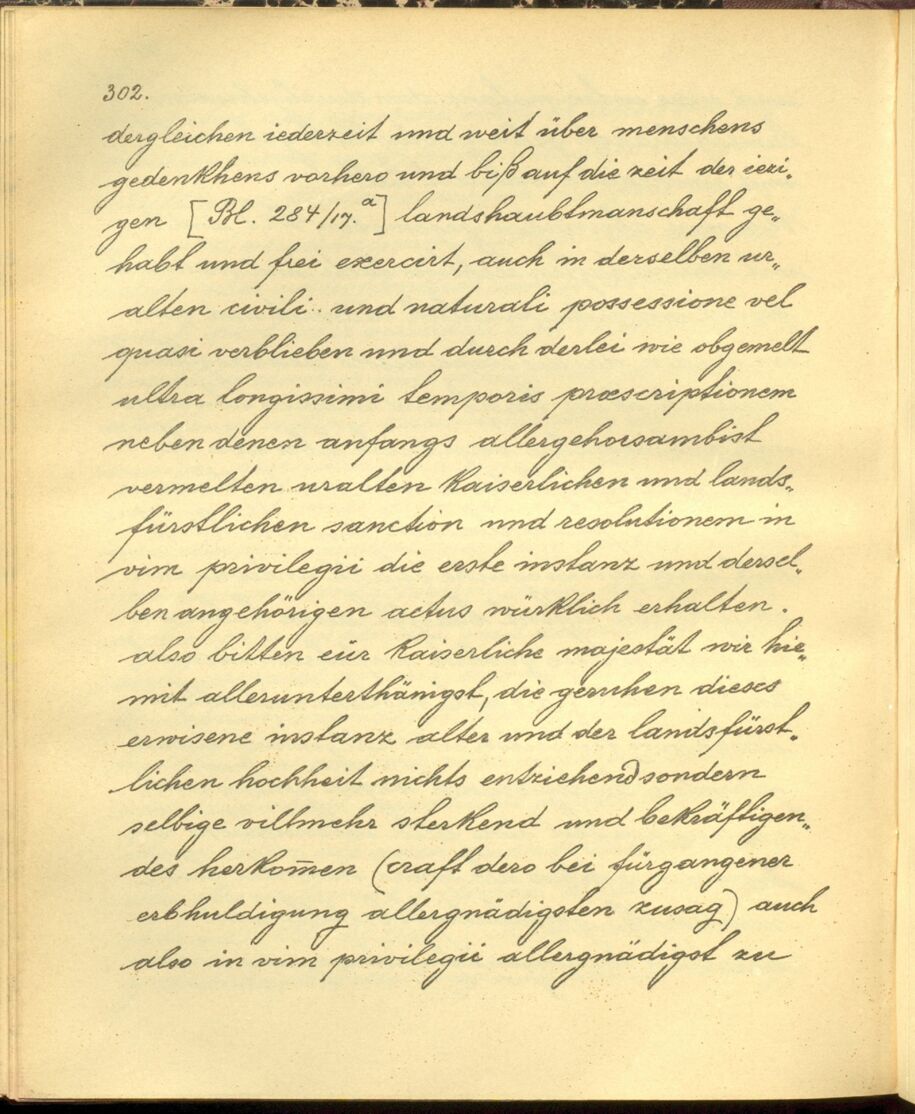 302.
dergleichen iederzeit und weit über menschens
gedenkhens vorhero und biß auf die zeit der iezi„
gen [Bl. 284/17.a] landshaubtmanschaft ge„
habt und frei exercirt, auch in derselben ur„
alten civili.. und naturali possessione vel
quasi verblieben und durch derlei wie obgemelt
ultra longissimi temporis præscriptionem
neben denen anfangs allergehorsambist
vermelten uralten kaiserlichen und lands„
fürstlichen sanction und resolutionem in
vim privilegii die erste instanz und dersel„
ben angehörigen actus würklich erhalten.
also bitten eür kaiserliche majestät wir hie„
mit allerunterthänigst, die geruhen dieses
erwisene instanz alter und der landsfürst„
lichen hochheit nichts entziehend sondern
selbige villmehr sterkend und bekräftigen„
des herkom̄en (craft dero bei fürgangener
erbhuldigung allergnädigsten zusag) auch
also in vim privilegii allergnädigst zu